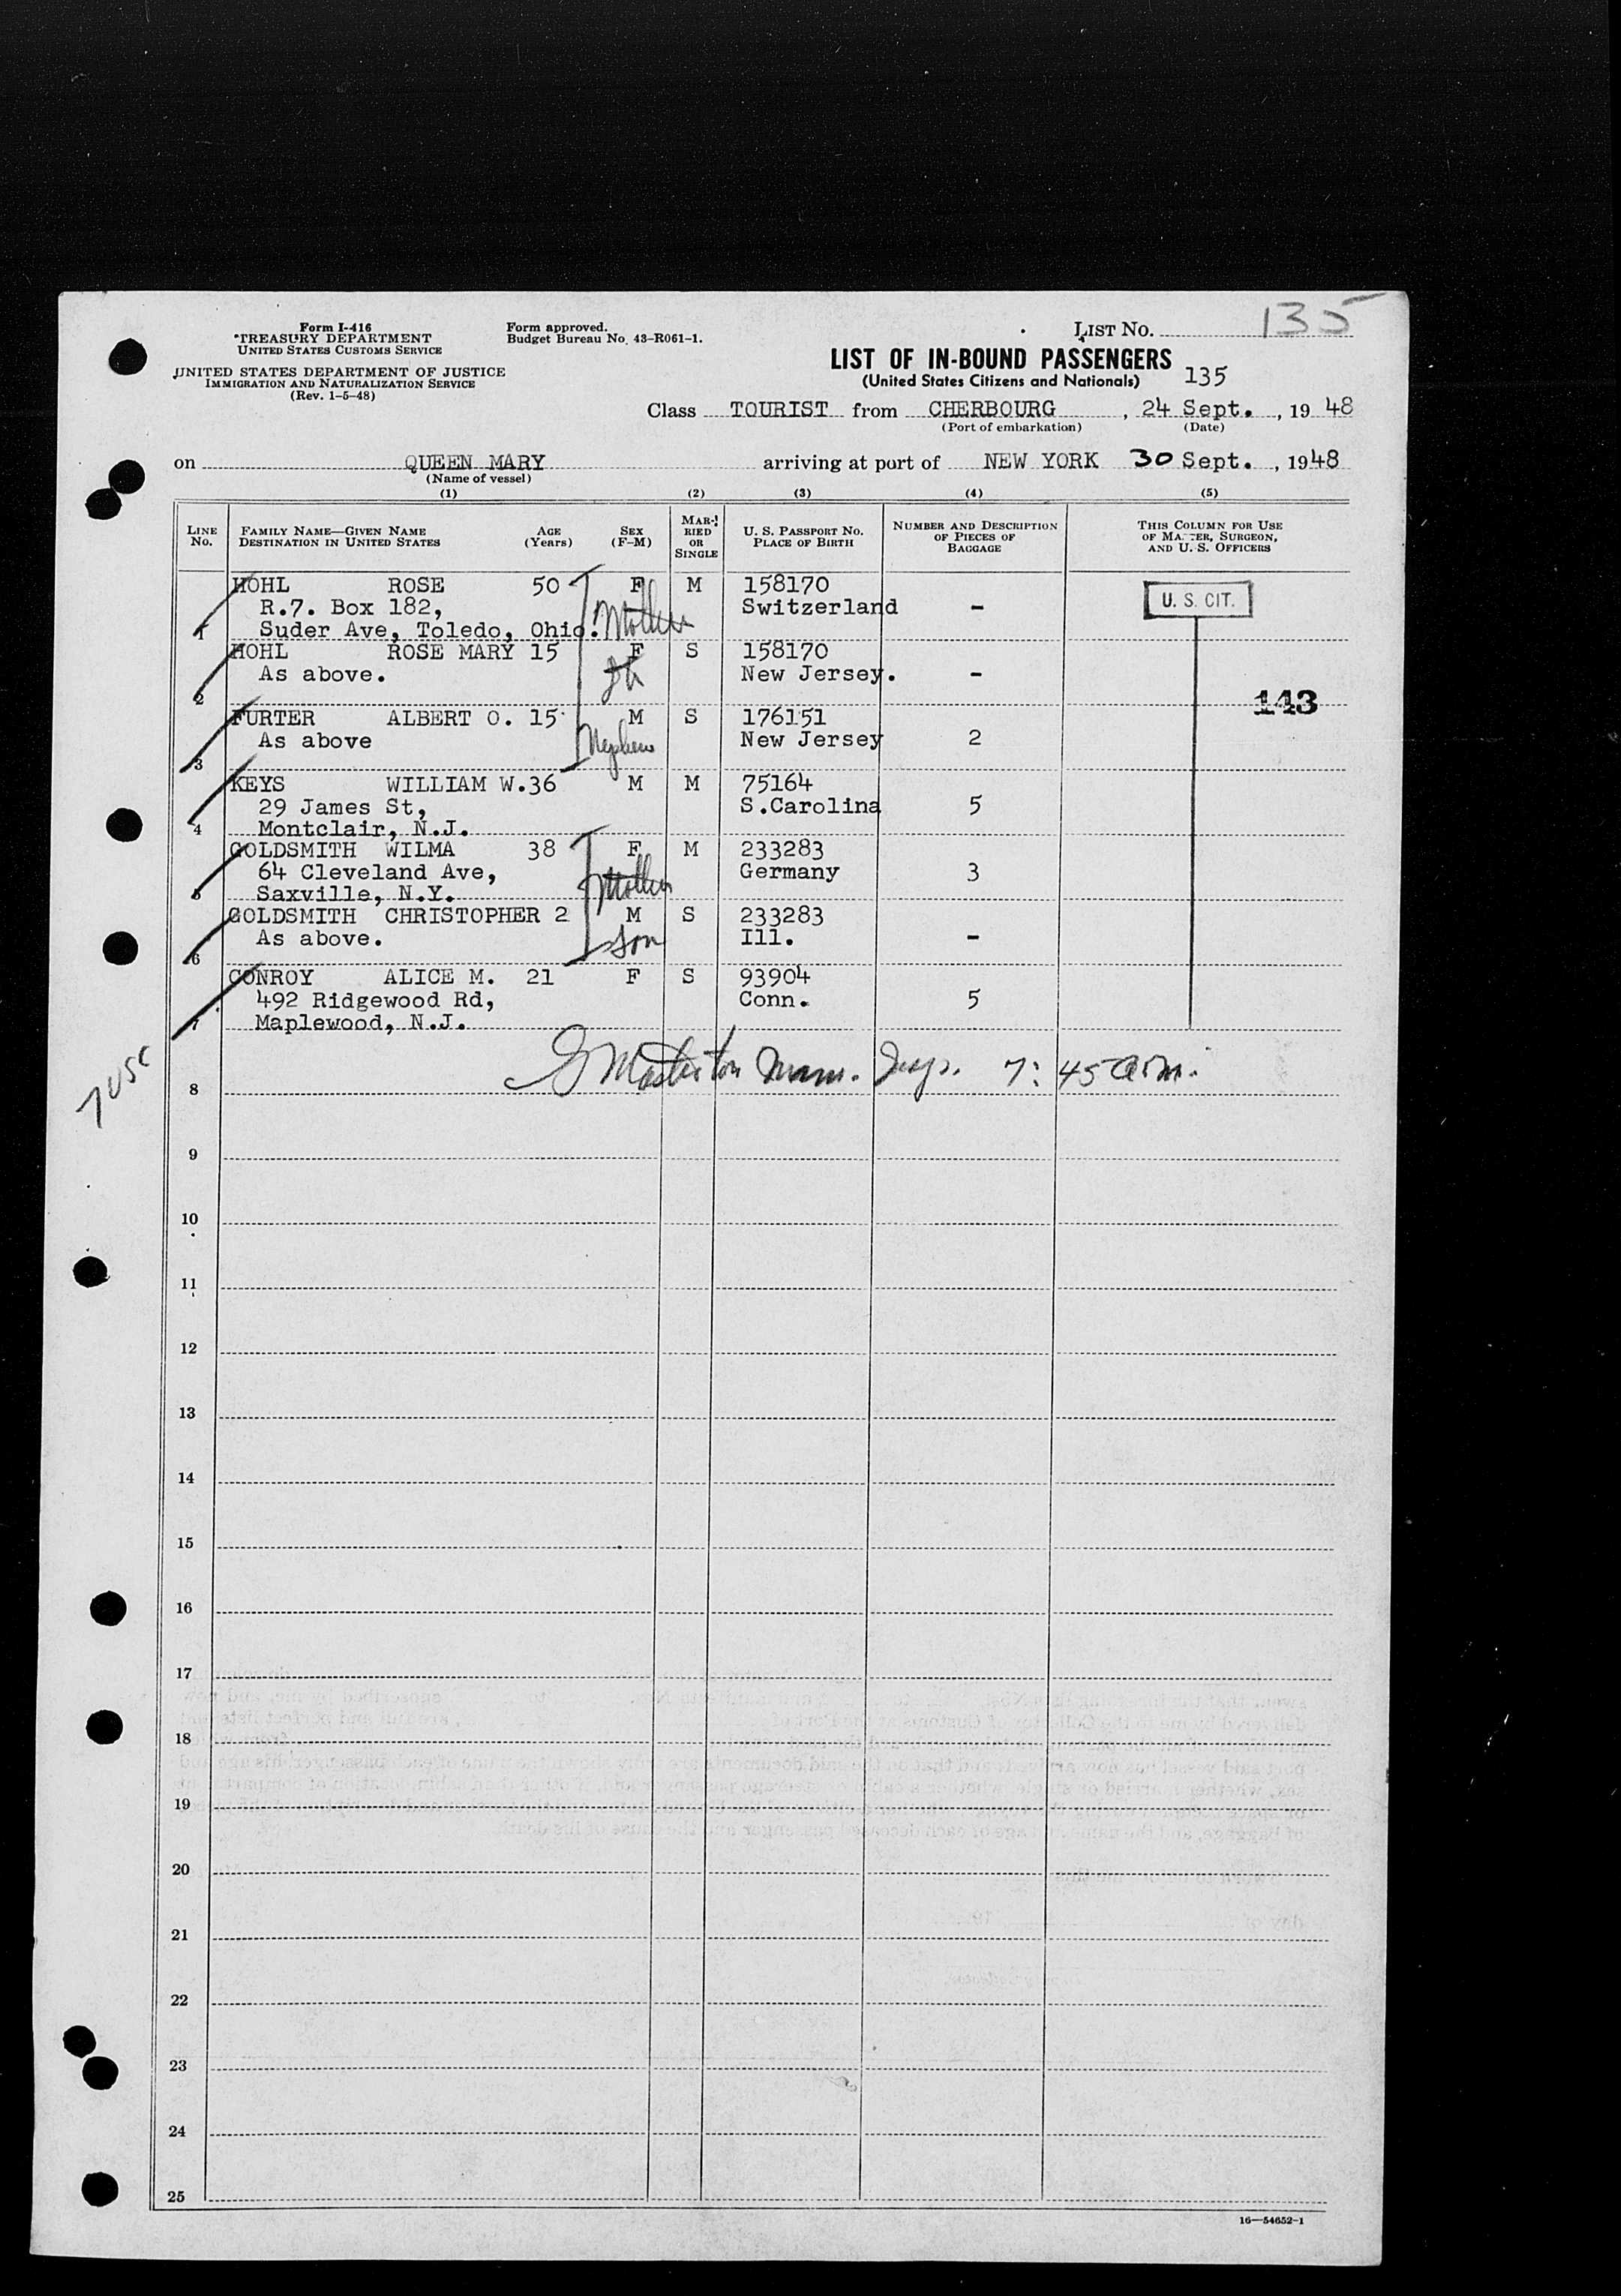 Form I-416
TREASURY DEPARTMENT
UNITED STATES CUSTOMS SERVICE
UNITED STATES DEPARTMENT OF JUSTICE
IMMIGRATION AND NATURALIZATION SERVICE
(Rev. 1-5-48)
Form approved.
Budget Bureau No. 43-R061-1.
LIST No. 135
LIST OF IN-BOUND PASSENGERS
(United States Citizens and Nationals) 135
Class TOURIST from CHERBOURG, 24 Sept., 19 48
(Port of embarkation) (Date)
on QUEEN MARY arriving at port of NEW YORK 30 Sept., 1948
(Name of vessel)
(1) (2) (3) (4) (5)
LINE No. FAMILY NAME—GIVEN NAME DESTINATION IN UNITED STATES AGE (Years) SEX (F-M) MARRIED OR SINGLE U. S. PASSPORT No. PLACE OF BIRTH NUMBER AND DESCRIPTION OF PIECES OF BAGGAGE THIS COLUMN FOR USE OF MASTER, SURGEON, AND U. S. OFFICERS
HOHL ROSE 50 F M 158170 U. S. CIT.
R.7. Box 182, Switzerland -
1 Suder Ave, Toledo, Ohio. Mother
HOHL ROSE MARY 15 F S 158170
As above. New Jersey. -
2
143
FURTER ALBERT O. 15 M S 176151
As above Nephew New Jersey 2
3
KEYS WILLIAM W. 36 M M 75164
29 James St, S.Carolina 5
4 Montclair, N.J.
GOLDSMITH WILMA 38 F M 233283
64 Cleveland Ave, Mother Germany 3
5 Saxville, N.Y.
GOLDSMITH CHRISTOPHER 2 M S 233283
As above. Son Ill. -
6
CONROY ALICE M. 21 F S 93904
492 Ridgewood Rd, Conn. 5
7 Maplewood, N.J.
7 USC
8 Masterton Imm. Insp. 7:45 a.m.
9
10
11
12
13
14
15
16
17
18
19
20
21
22
23
24
25
16—54652-1